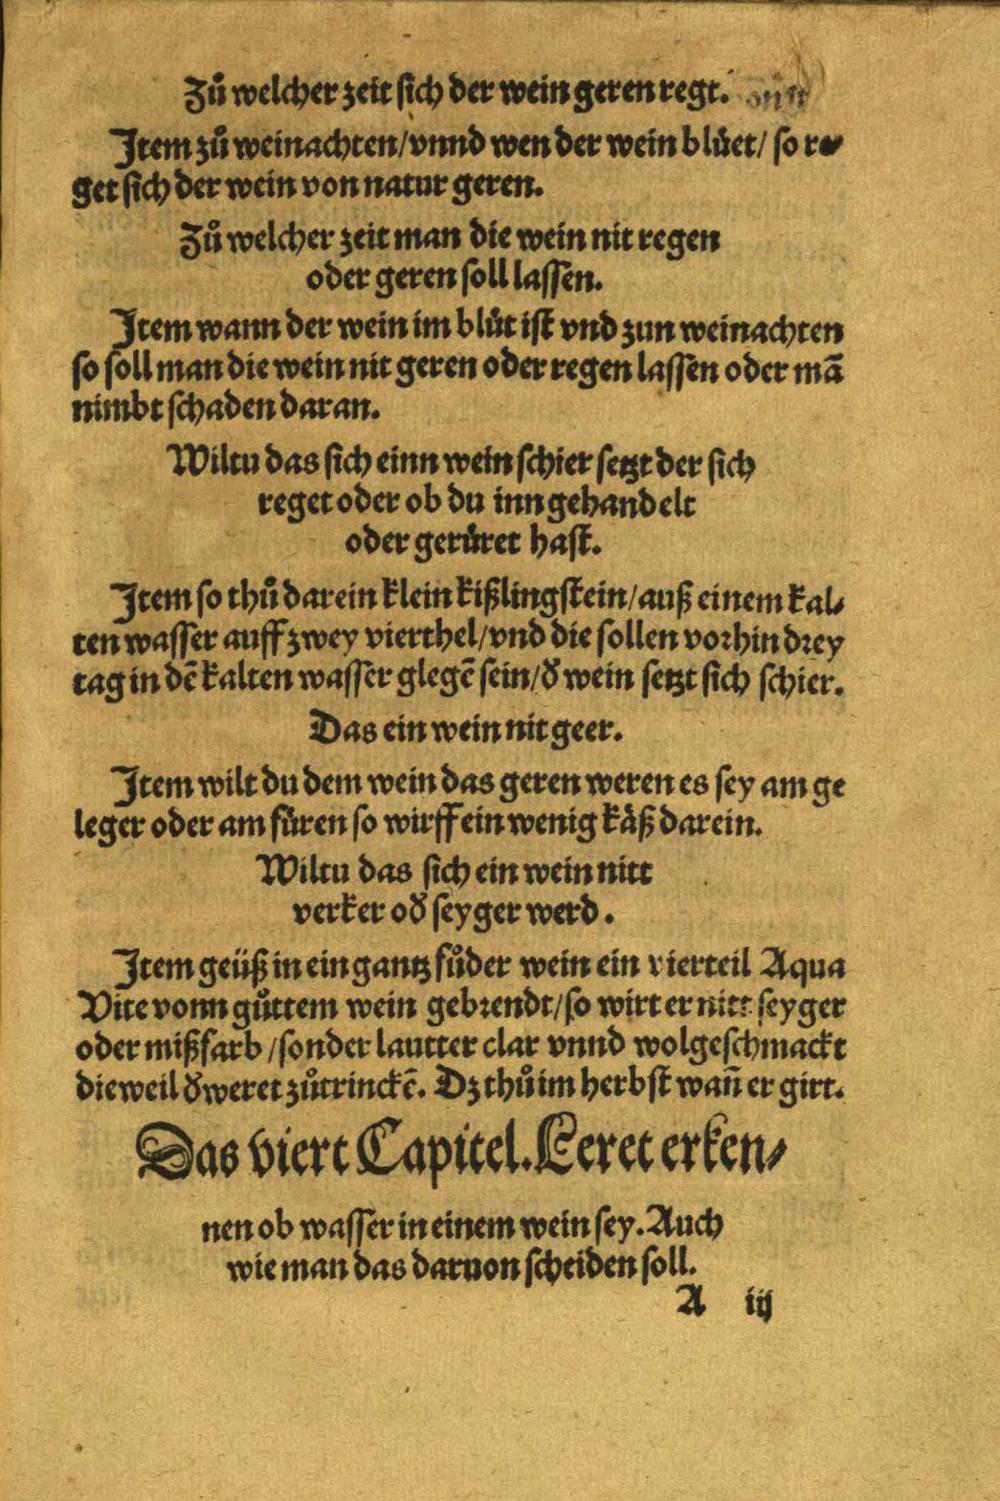 Zuͦ welcher zeit sich der wein geren regt.
Item zuͦ weinachten/vnnd wen der wein bluͤet/ so re⸗
get sich der wein von natur geren.
Zuͦ welcher zeit man die wein nit regen
oder geren soll lassen.
Item wann der wein im bluͤt ist vnd zun weinachten
so soll man die wein nit geren oder regen lassen oder mā
nimbt schaden daran.
Wiltu das sich einn wein schier setzt der sich
reget oder ob du inn gehandelt
oder geruͤret hast.
Item so thuͦ darein klein kißlingstein/auß einem kal⸗
ten wasser auff zwey vierthel/vnd die sollen vorhin drey
tag in dē kalten wasser glegē sein/ð wein setzt sich schier.
Das ein wein nit geer.
Item wilt du dem wein das geren weren es sey am ge
leger oder am fuͤren so wirff ein wenig kaͤß darein.
Wiltu das sich ein wein nitt
verker oð seyger werd.
Item geüß in ein gantz fuͦder wein ein vierteil Aqua
Vite vonn guͦttem wein gebrendt/so wirt er nitt seyger
oder mißfarb/sonder lautter clar vnnd wolgeschmackt
die weil ð weret zuͦtrinckē. Dz thuͦ im herbst wañ er girt.
Das viert Capitel. Leret erken⸗
nen ob wasser in einem wein sey. Auch
wie man das daruon scheiden soll.
A iij